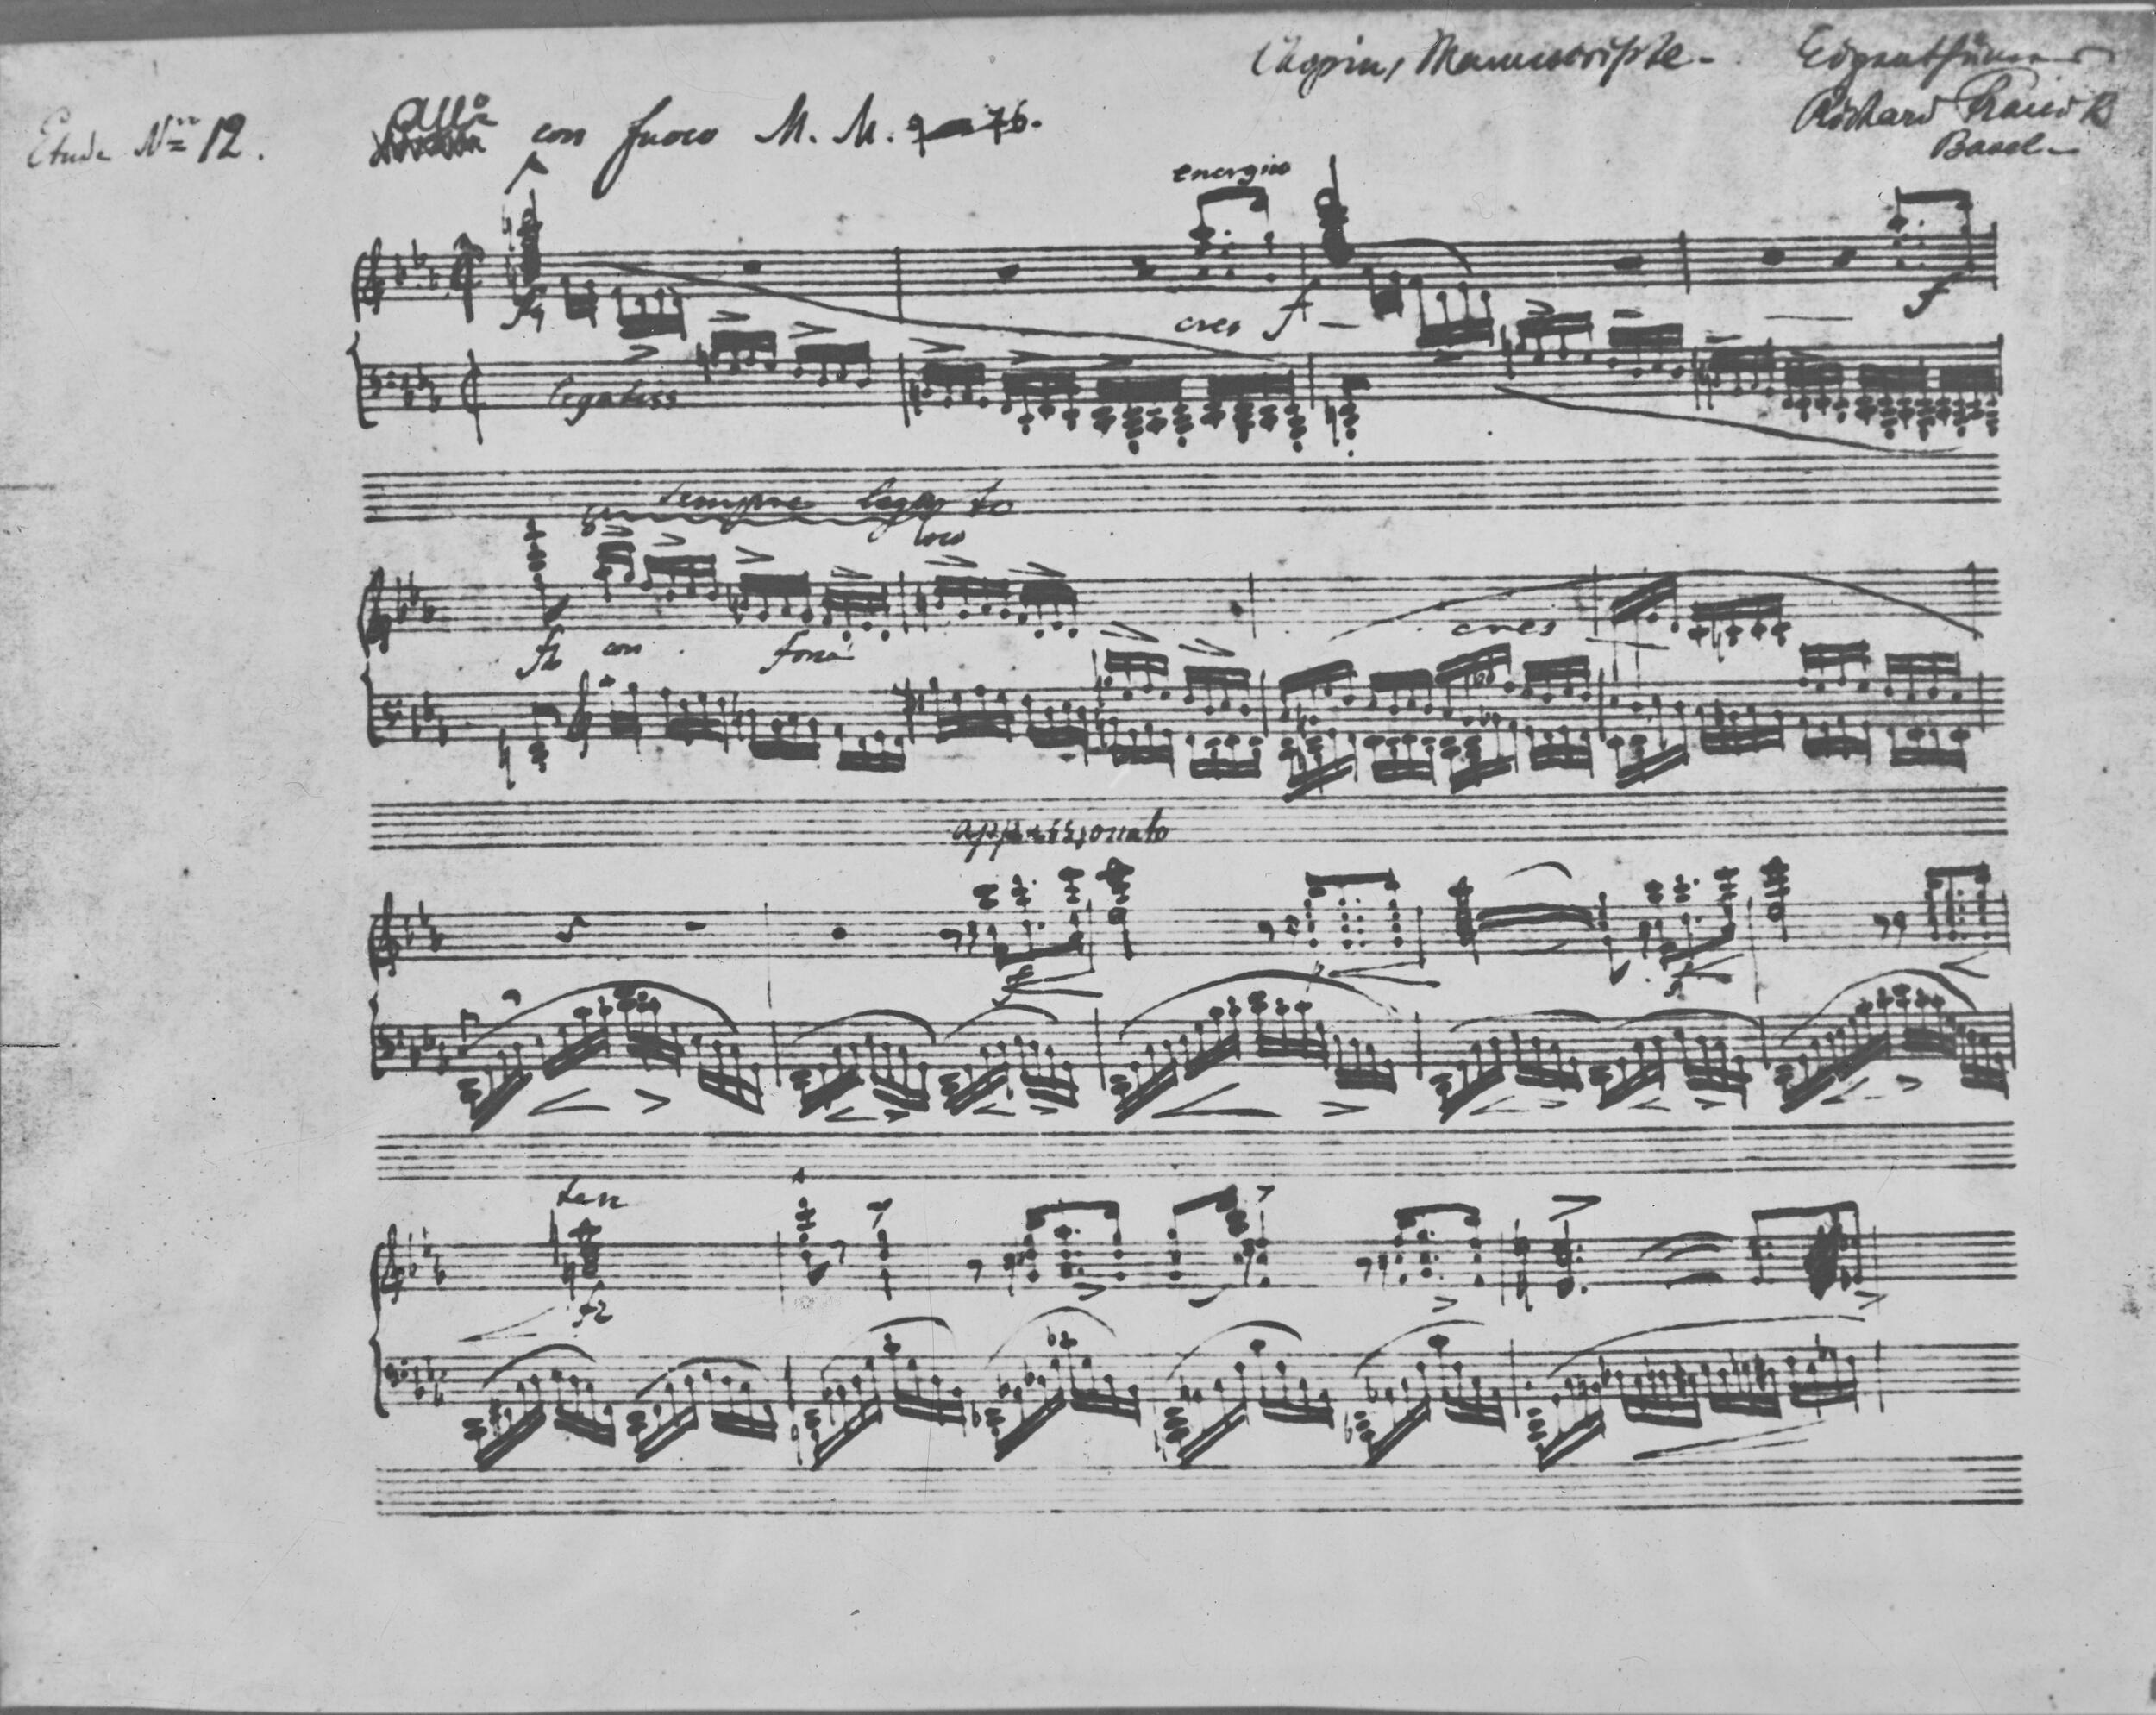 Chopin, Manuscripte - Eigenthümer
Richard Franck
Basel -
Etude No 12.
Allo con fuoco M. M. 76.
energico
fz cres f f
legatiss
sempre legato
8 loco
fz con forza cres
appassionato
f p
ten
fz